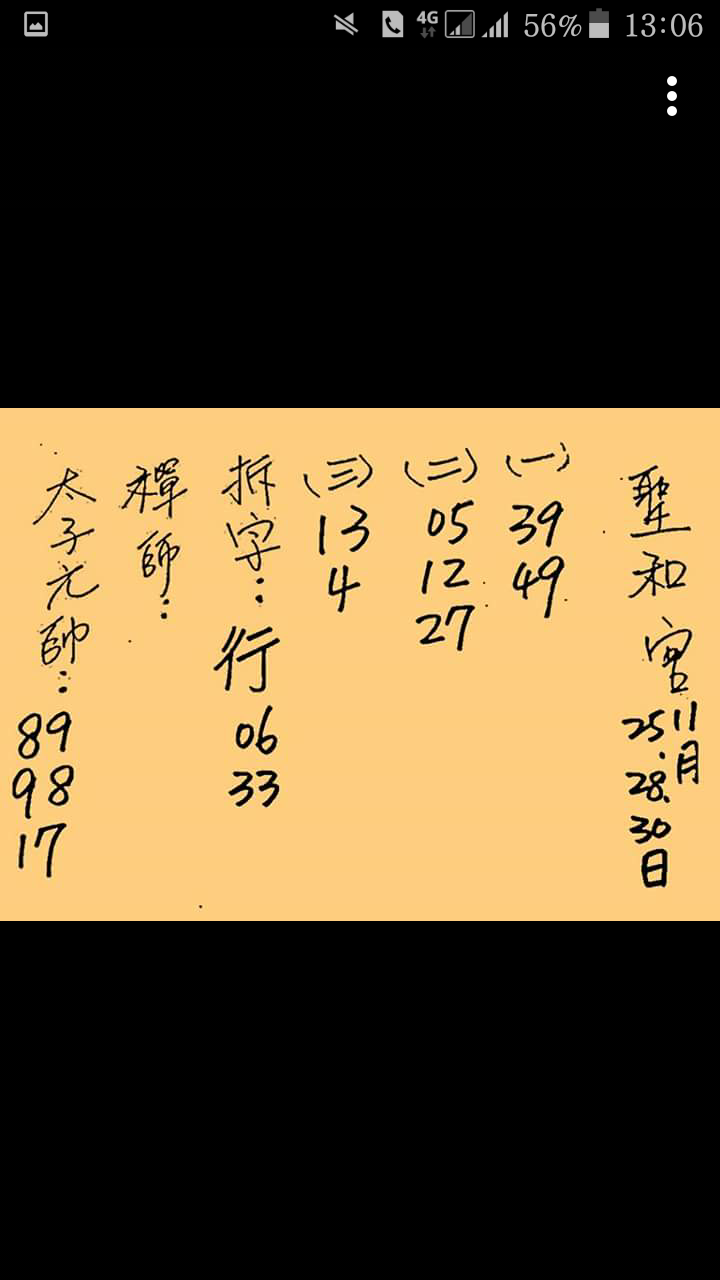 4G 56% 13:06
聖和宮
11月
25.28.30日
(一)
39
49
(二)
05
12
27
(三)
13
4
拆字:行
06
33
禪師:
太子元帥:
89
98
17